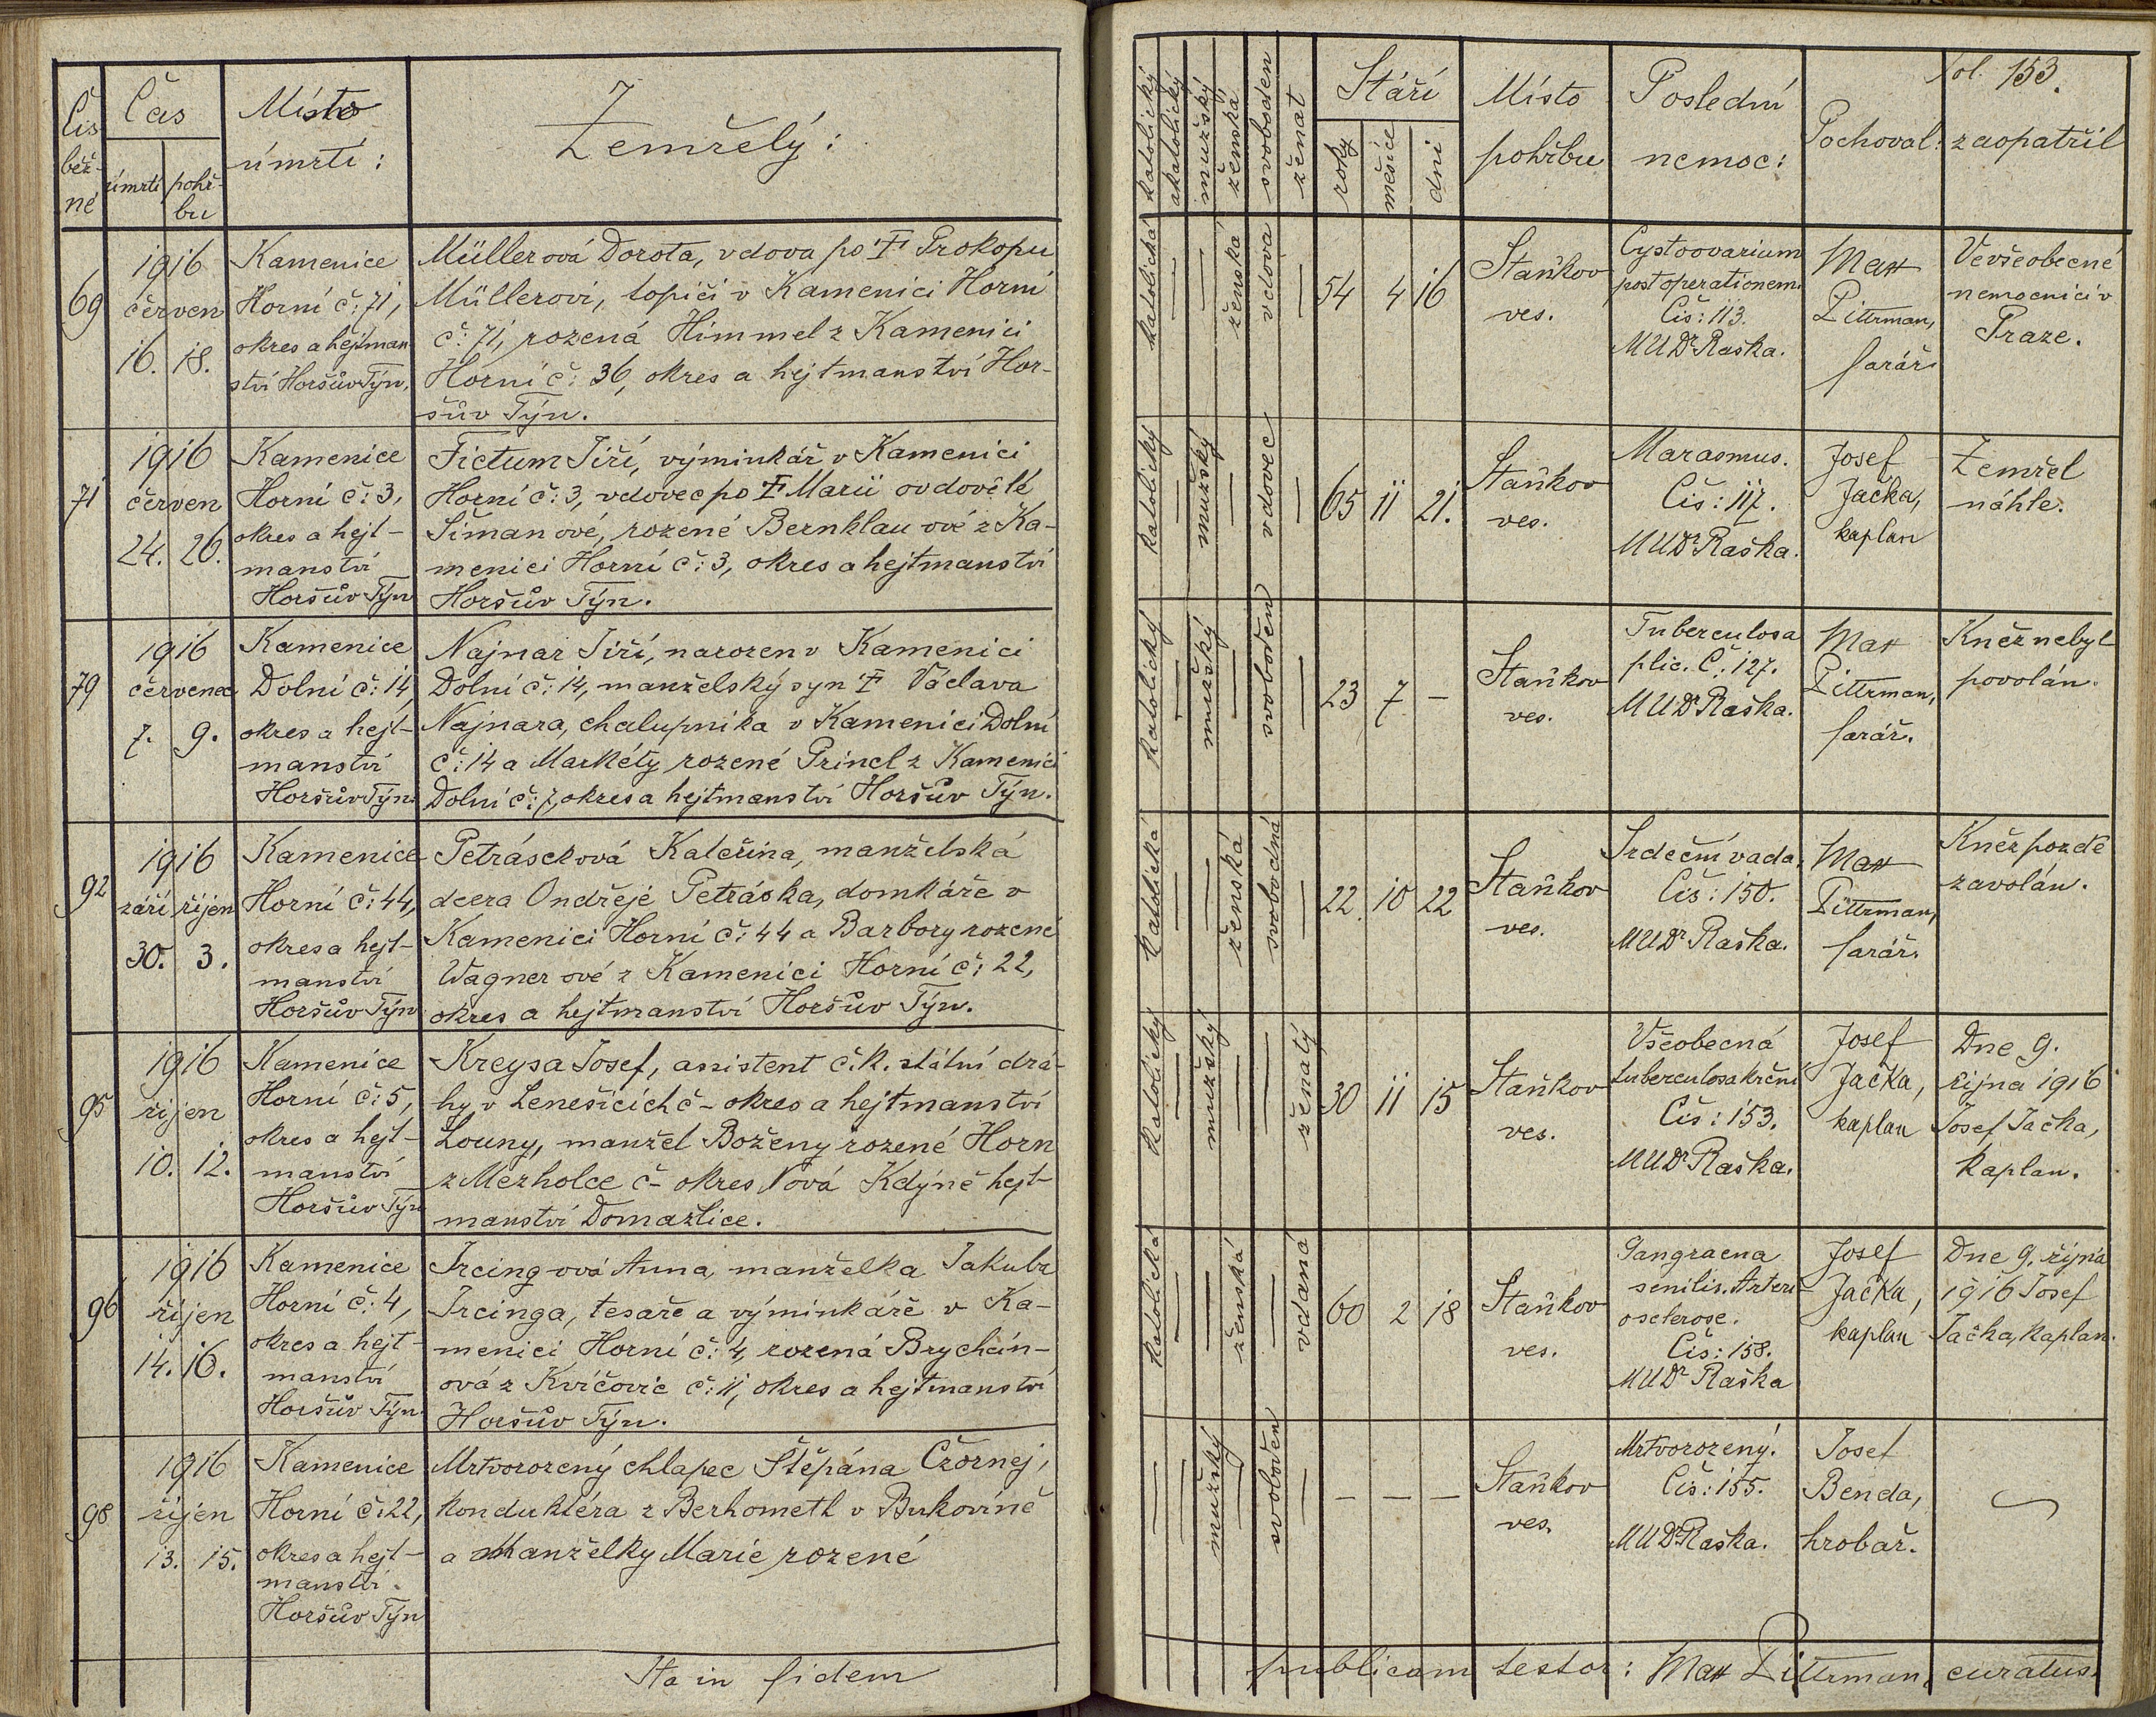 Čis
běž-
né
Čas
úmrtí
pohř-
bu
Místo
úmrtí:
Zemřelý:
69
1916
červen
16. 18.
Kamenice
Horní č: 71,
okres a hejtman-
ství Horšův Týn.
Müllerová Dorota, vdova po † Prokopu
Müllerovi, topiči v Kamenici Horní
č: 71, rozená Himmel z Kamenici
Horní č: 36, okres a hejtmanství Hor-
šův Týn.
71
1916
červen
24. 26.
Kamenice
Horní č: 3,
okres a hejt-
manství
Horšův Týn
Fictum Jiří, výminkář v Kamenici
Horní č: 3, vdovec po † Marii ovdovělé
Šimanové, rozené Bernklau ové z Ka-
menici Horní č: 3, okres a hejtmanství
Horšův Týn.
79
1916
červenec
7. 9.
Kamenice
Dolní č: 14,
okres a hejt-
manství
Horšův Týn.
Najnar Jiří, narozen v Kamenici
Dolní č: 14, manželský syn † Václava
Najnara, chalupníka v Kamenici Dolní
č: 14 a Markéty rozené Princl z Kamenici
Dolní č: 7, okres a hejtmanství Horšův Týn.
92
1916
září říjen
30. 3.
Kamenice
Horní č: 44,
okres a hejt-
manství
Horšův Týn
Petrásková Kateřina, manželská
dcera Ondřeje Petráska, domkáře v
Kamenici Horní č: 44 a Barbory rozené
Wagner ové z Kamenici Horní č: 22,
okres a hejtmanství Horšův Týn.
95
1916
říjen
10. 12.
Kamenice
Horní č: 5,
okres a hejt-
manství
Horšův Týn
Kreysa Josef, asistent c. k. státní drá-
hy v Lenešicích č - okres a hejtmanství
Louny, manžel Boženy rozené Horn
z Mezholce č - okres Nová Kdýně hejt-
manství Domažlice.
96
1916
říjen
14. 16.
Kamenice
Horní č: 4,
okres a hejt-
manství
Horšův Týn.
Ircing ová Anna, manželka Jakuba
Ircinga, tesaře a výminkáře v Ka-
menici Horní č: 4, rozená Brychcín-
ová z Kvíčovic č: 11, okres a hejtmanství
Horšův Týn.
98
1916
říjen
13. 15.
Kamenice
Horní č: 22,
okres a hejt-
manství
Horšův Týn
Mrtvorozený chlapec Štěpána Czornej,
konduktéra z Berhometh v Bukovině
a Manželky Marie rozené
Ita in fidem
fol. 153.
katolický
akatolický
mužský
ženská
svoboden
ženat
Stáří
roky
měsíce
dni
Místo
pohřbu
Poslední
nemoc:
Pochoval:
zaopatřil
katolická — — ženská vdova —
54 4 16
Staňkov
ves.
Cystoovarium
post operationem.
Čís: 113.
MUDr Raška.
Max
Pittrman,
farář.
Ve všeobecné
nemocnici v
Praze.
katolický — mužský — vdovec —
65 11 21.
Staňkov
ves.
Marasmus.
Čís: 117.
MUDr Raška.
Josef
Jačka,
kaplan
Zemřel
náhle.
katolický — mužský — svoboden —
23 7 -
Staňkov
ves.
Tuberculosa
plic. Č: 127.
MUDr Raška.
Max
Pittrman,
farář.
Kněz nebyl
povolán.
katolická — — ženská svobodná —
22. 10 22
Staňkov
ves.
Srdeční vada.
Čís: 150.
MUDr Raška.
Max
Pittrman,
farář.
Kněz pozdě
zavolán.
katolický — mužský — — ženatý
30 11 15
Staňkov
ves.
Všeobecná
tuberculosa krční
Čís: 153.
MUDr Raška.
Josef
Jačka,
kaplan
Dne 9.
října 1916
Josef Jačka,
kaplan.
katolická — — ženská — vdaná
60 2 18
Staňkov
ves.
Gangraena
senilis. Arteri-
osclerose.
Čís: 158.
MUDr Raška
Josef
Jačka,
kaplan
Dne 9. října
1916 Josef
Jačka, kaplan.
— — mužský — svoboden —
- - -
Staňkov
ves.
Mrtvorozený.
Čís: 155.
MUDr Raška.
Josef
Benda,
hrobař.
publicam testor: Max Pittrman, curatus.